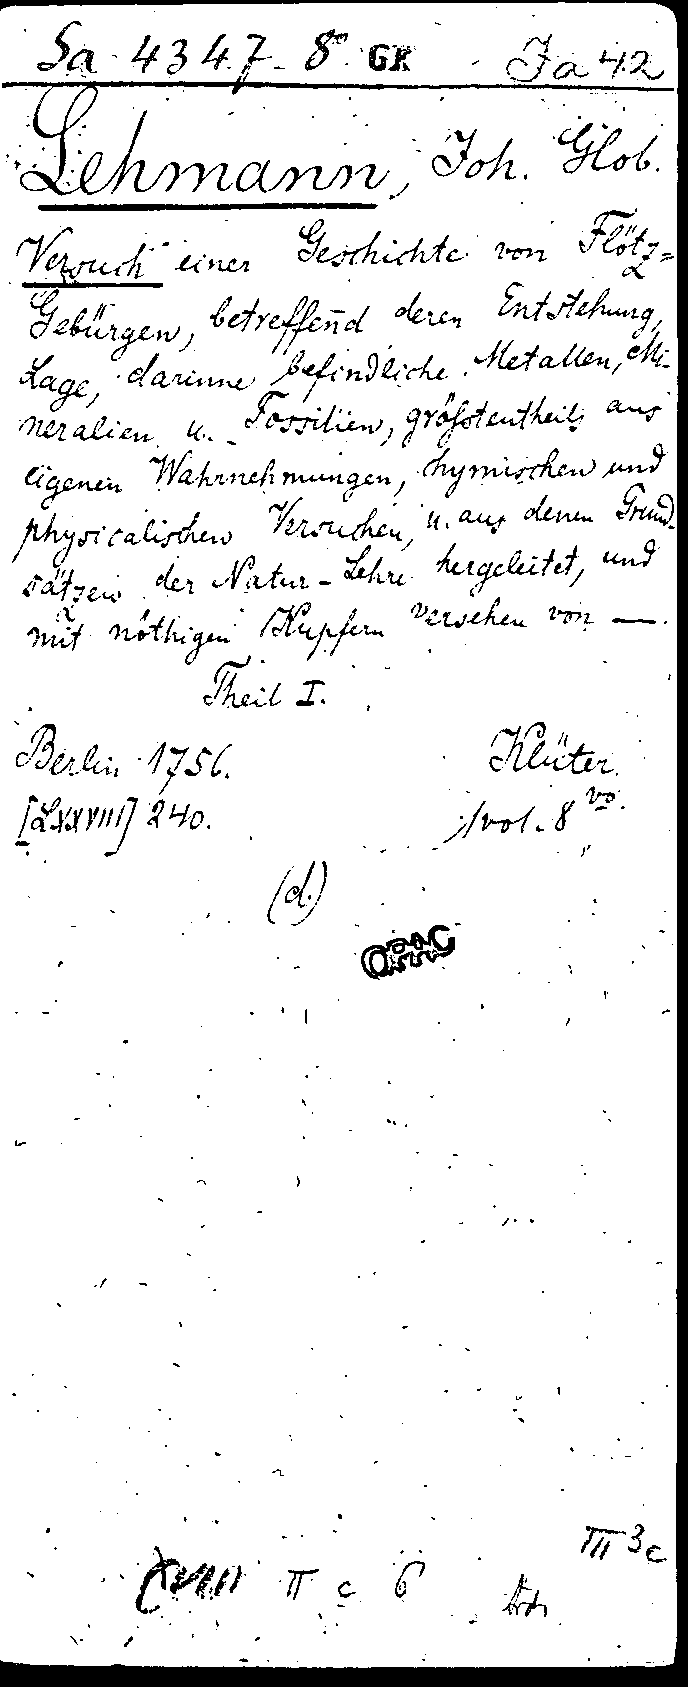 Sa 4347-8° GK Ja 42
Lehmann, Joh. Glob.
Versuch einer Geschichte von Flötz=
Gebürgen, betreffend deren Entstehung,
Lage, darinne befindliche Metallen, Mi-
neralien u. Fossilien, gröſstentheils aus
eigenen Wahrnehmungen, chymischen und
physicalischen Versuchen, u. aus denen Grund-
sätzen der Natur-Lehre hergeleitet, und
mit nöthigen Kupfern versehen von —.
Theil I.
Berlin 1756. Klüter.
[LXXVIII] 240. 1 vol. 8vo.
(d.)
OPAC
III 3c
II c 6